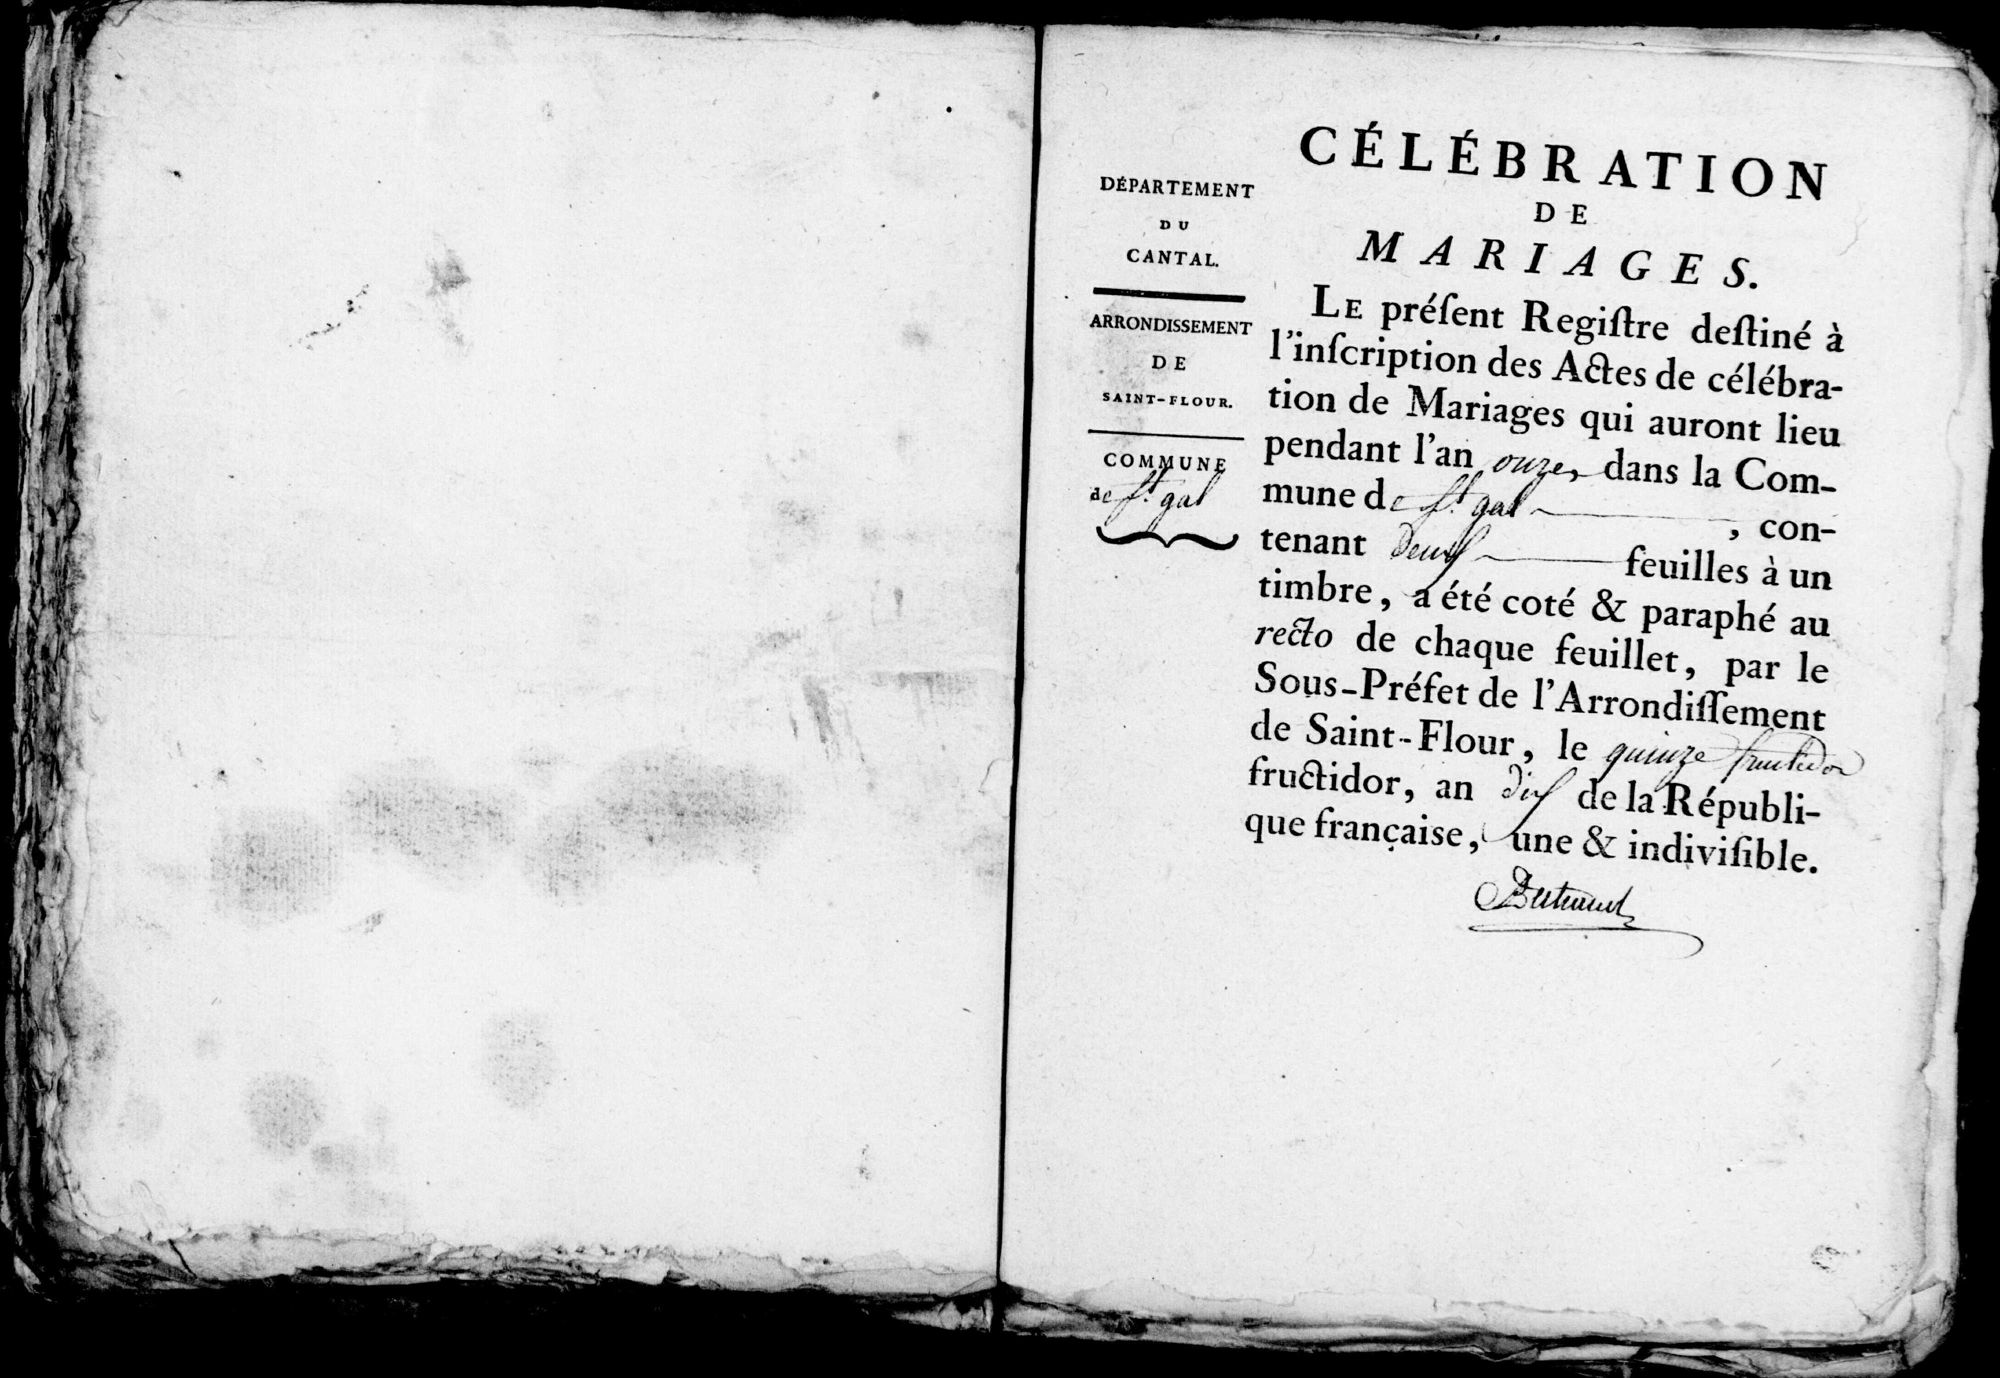 DÉPARTEMENT
DU
CANTAL.
ARRONDISSEMENT
DE
SAINT-FLOUR.
COMMUNE
de St. gal
CÉLÉBRATION
DE
MARIAGES.
LE préſent Regiſtre deſtiné à
l'inſcription des Actes de célébra-
tion de Mariages qui auront lieu
pendant l'an onze, dans la Com-
mune de St. gal, con-
tenant deux feuilles à un
timbre, a été coté & paraphé au
recto de chaque feuillet, par le
Sous-Préfet de l'Arrondiſſement
de Saint-Flour, le quinze fructidor
fructidor, an dix de la Républi-
que françaiſe, une & indiviſible.
Bertrand